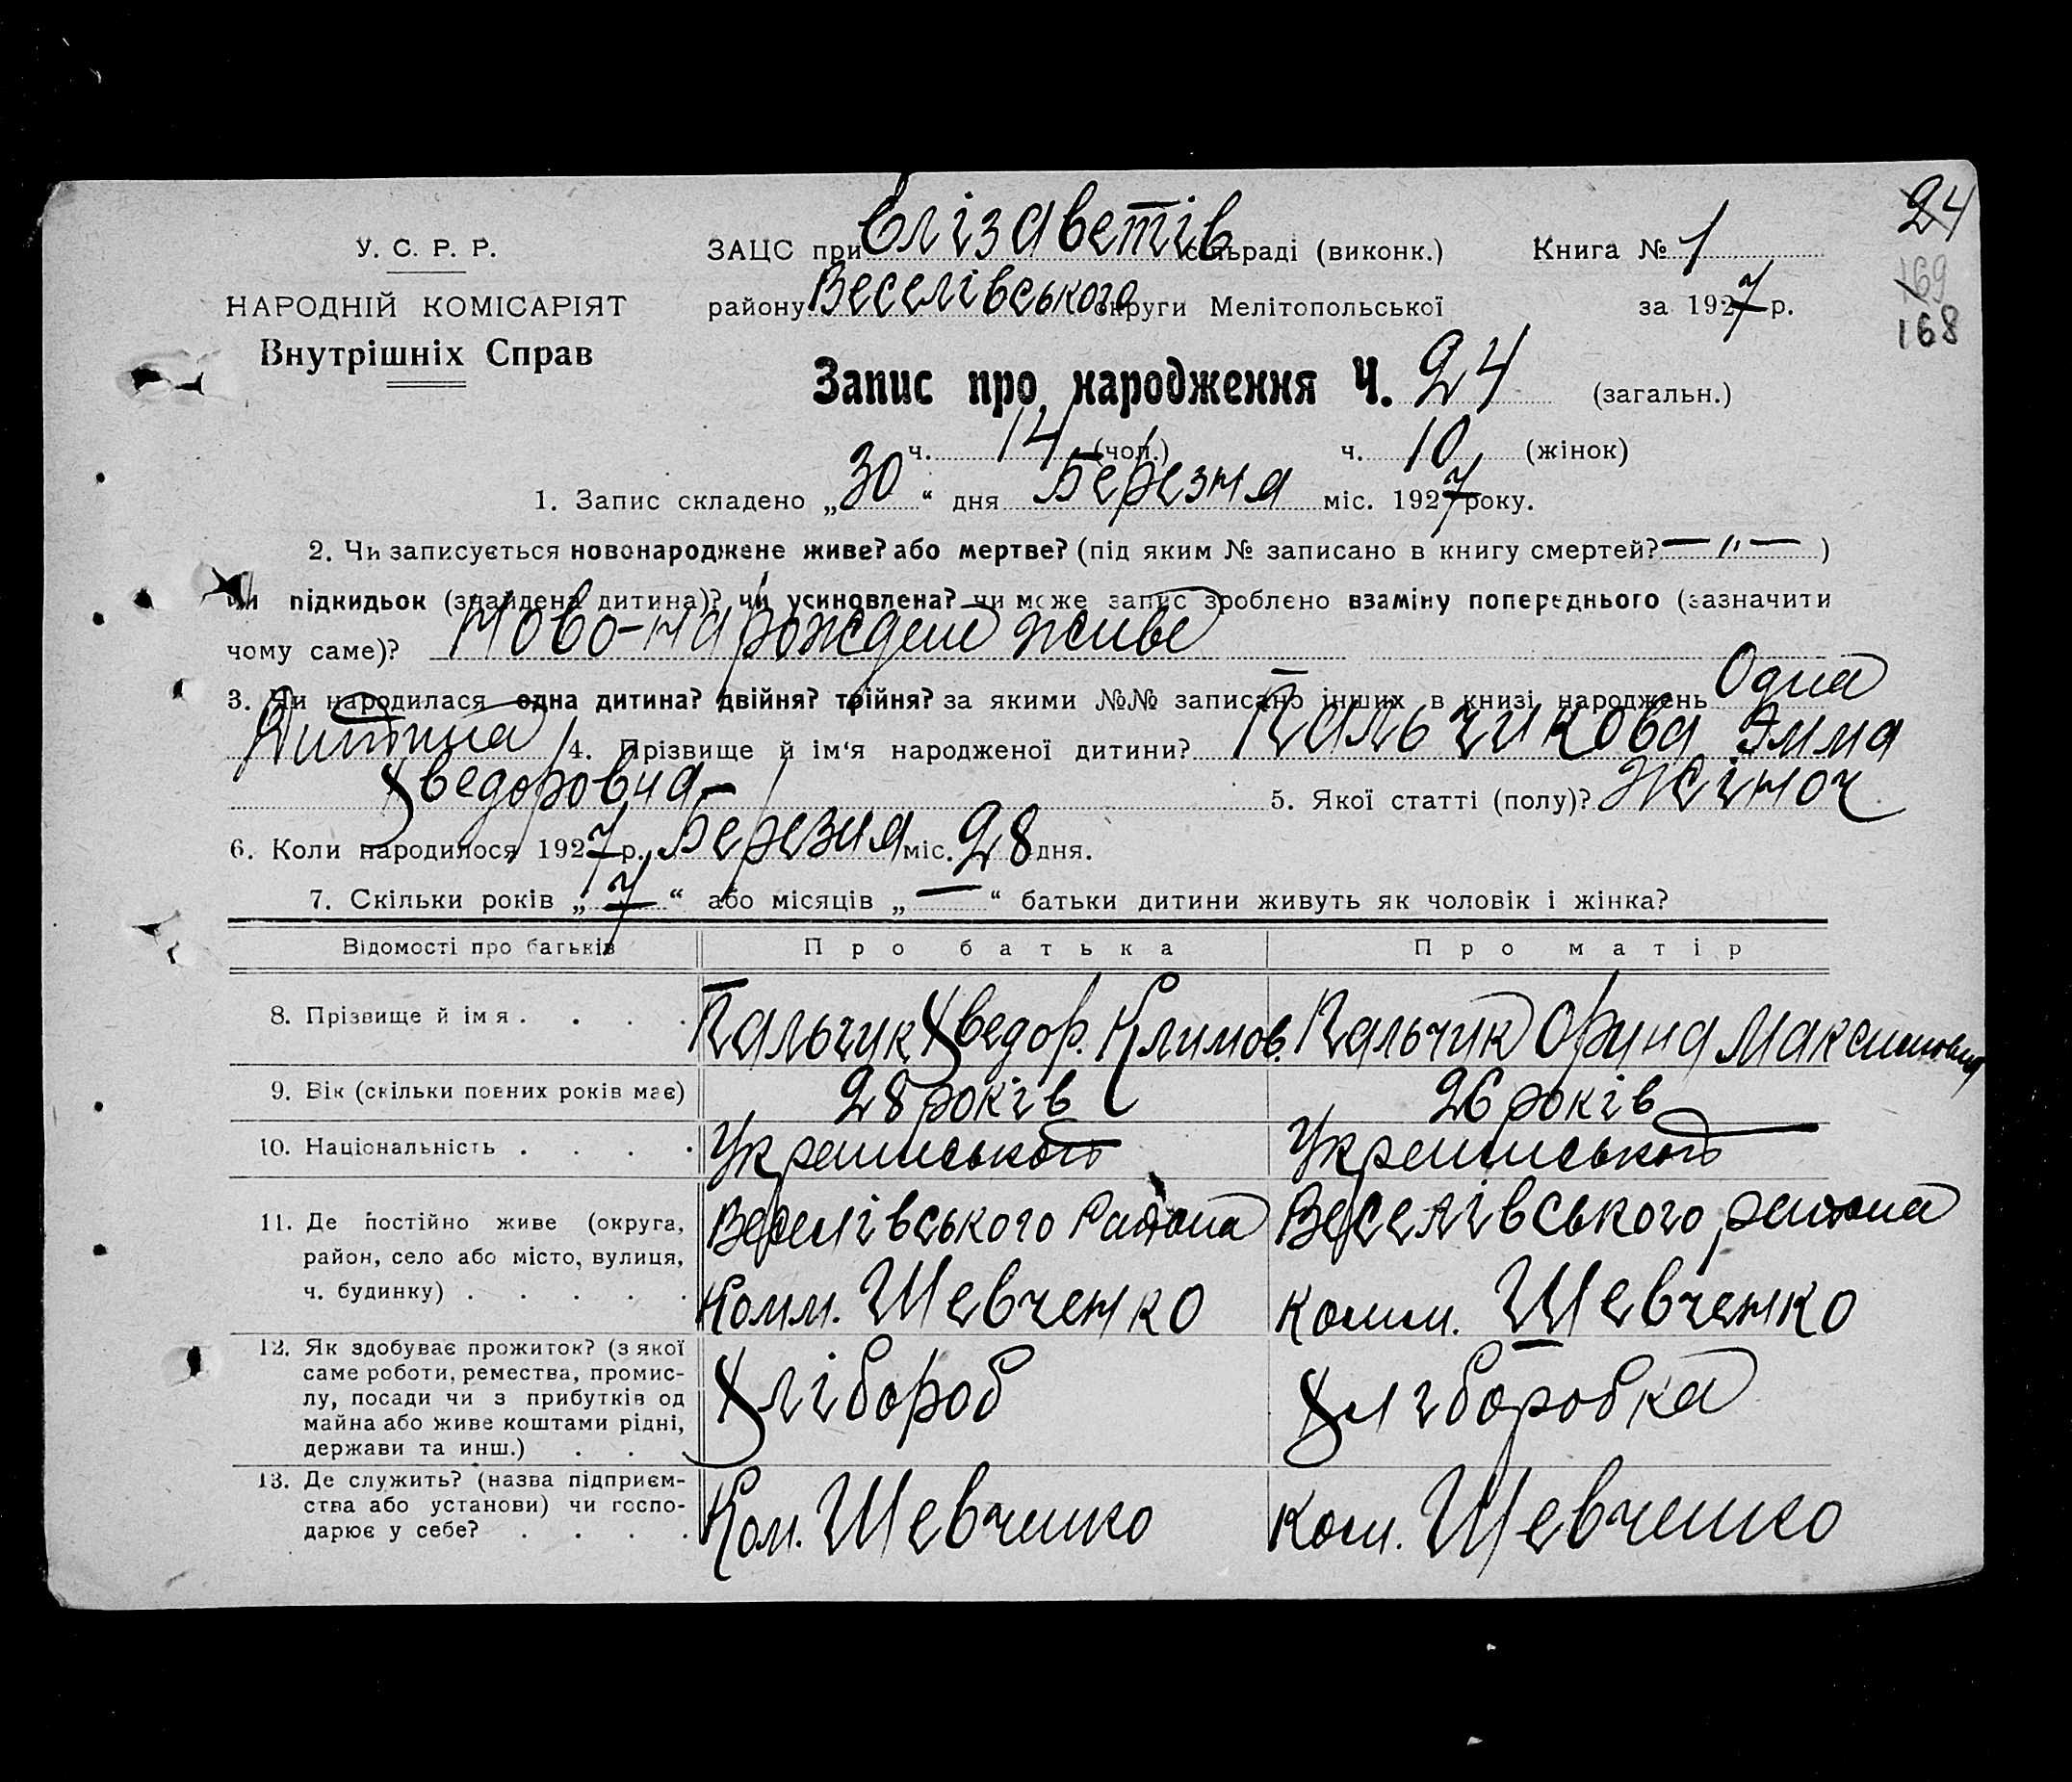 24
У. С. Р. Р.
ЗАЦС при Єлізаветів сільраді (виконк.)
Книга № 1
169
НАРОДНІЙ КОМІСАРІЯТ
району Веселівського округи Мелітопольської
за 1927 р.
168
Внутрішніх Справ
Запис про народження Ч. 24 (загальн.)
ч. 14 (чол.) ч. 10 (жінок)
1. Запис складено „30“ дня Березня міс. 1927 року.
2. Чи записується новонароджене живе? або мертве? (під яким № записано в книгу смертей? — „ — )
чи підкидьок (знайдена дитина)? чи усиновлена? чи може запис зроблено взаміну попереднього (зазначити
чому саме)? Ново-нарождене живе
3. Чи народилася одна дитина? двійня? трійня? за якими №№ записано інших в книзі народжень Одна
Дитина 4. Прізвище й ім‘я народженої дитини? Пальчикова Эмма
Хведоровна 5. Якої статті (полу)? Жіноч
6. Коли народилося 1927 р. Березня міс. 28 дня.
7. Скільки років „7“ або місяців „—“ батьки дитини живуть як чоловік і жінка?
Відомості про батьків
Про батька
Про матір
8. Прізвище й ім я . . . .
Пальчик Хведор. Климов.
Пальчик Орина Максимовна
9. Вік (скільки повних років має)
28 років
26 років
10. Національність . . . .
Української
Української
11. Де постійно живе (округа,
район, село або місто, вулиця,
ч. будинку) . . . . .
Веселівського Района
Комм. Шевченко
Веселівського района
комм. Шевченко
12. Як здобуває прожиток? (з якої
саме роботи, ремества, промис-
лу, посади чи з прибутків од
майна або живе коштами рідні,
держави та инш.) . . .
Хлібороб
Хлиборобка
13. Де служить? (назва підприєм-
ства або установи) чи госпо-
дарює у себе? . . . .
Ком. Шевченко
Ком. Шевченко